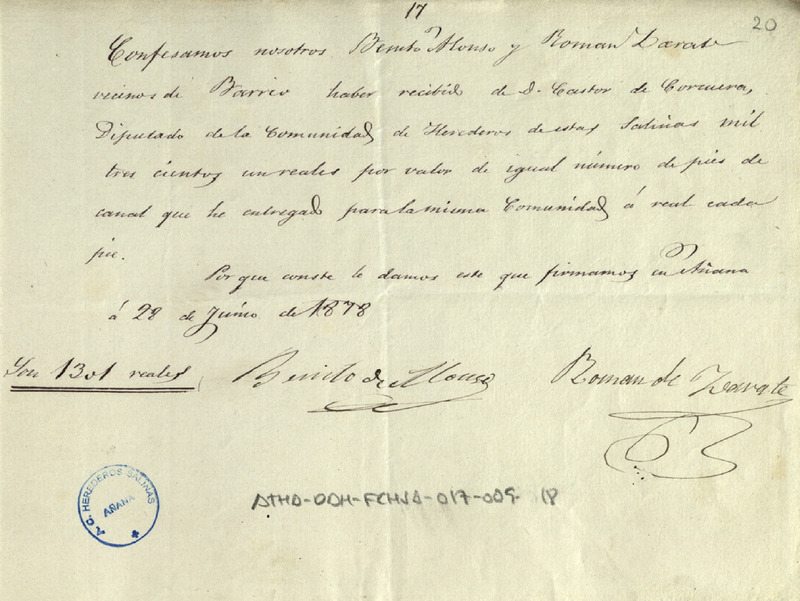 17
20
Confesamos nosotros Benito Alonso y Roman Zarate
vecinos de Barrio haber recibido de D. Castor de Corcuera,
Diputado de la Comunidad de Herederos de estas Salinas mil
tres cientos un reales por valor de igual número de pies de
canal que he entregado para la misma Comunidad á real cada
pie.
Por que conste le damos este que firmamos en Añana
á 28 de Junio de 1878
Son 1301 reales
Benito de Alonso
Roman de Zarate
A. C. HEREDEROS SALINAS
AÑANA
ATHA-DDH-FCHSA-017-009- 18